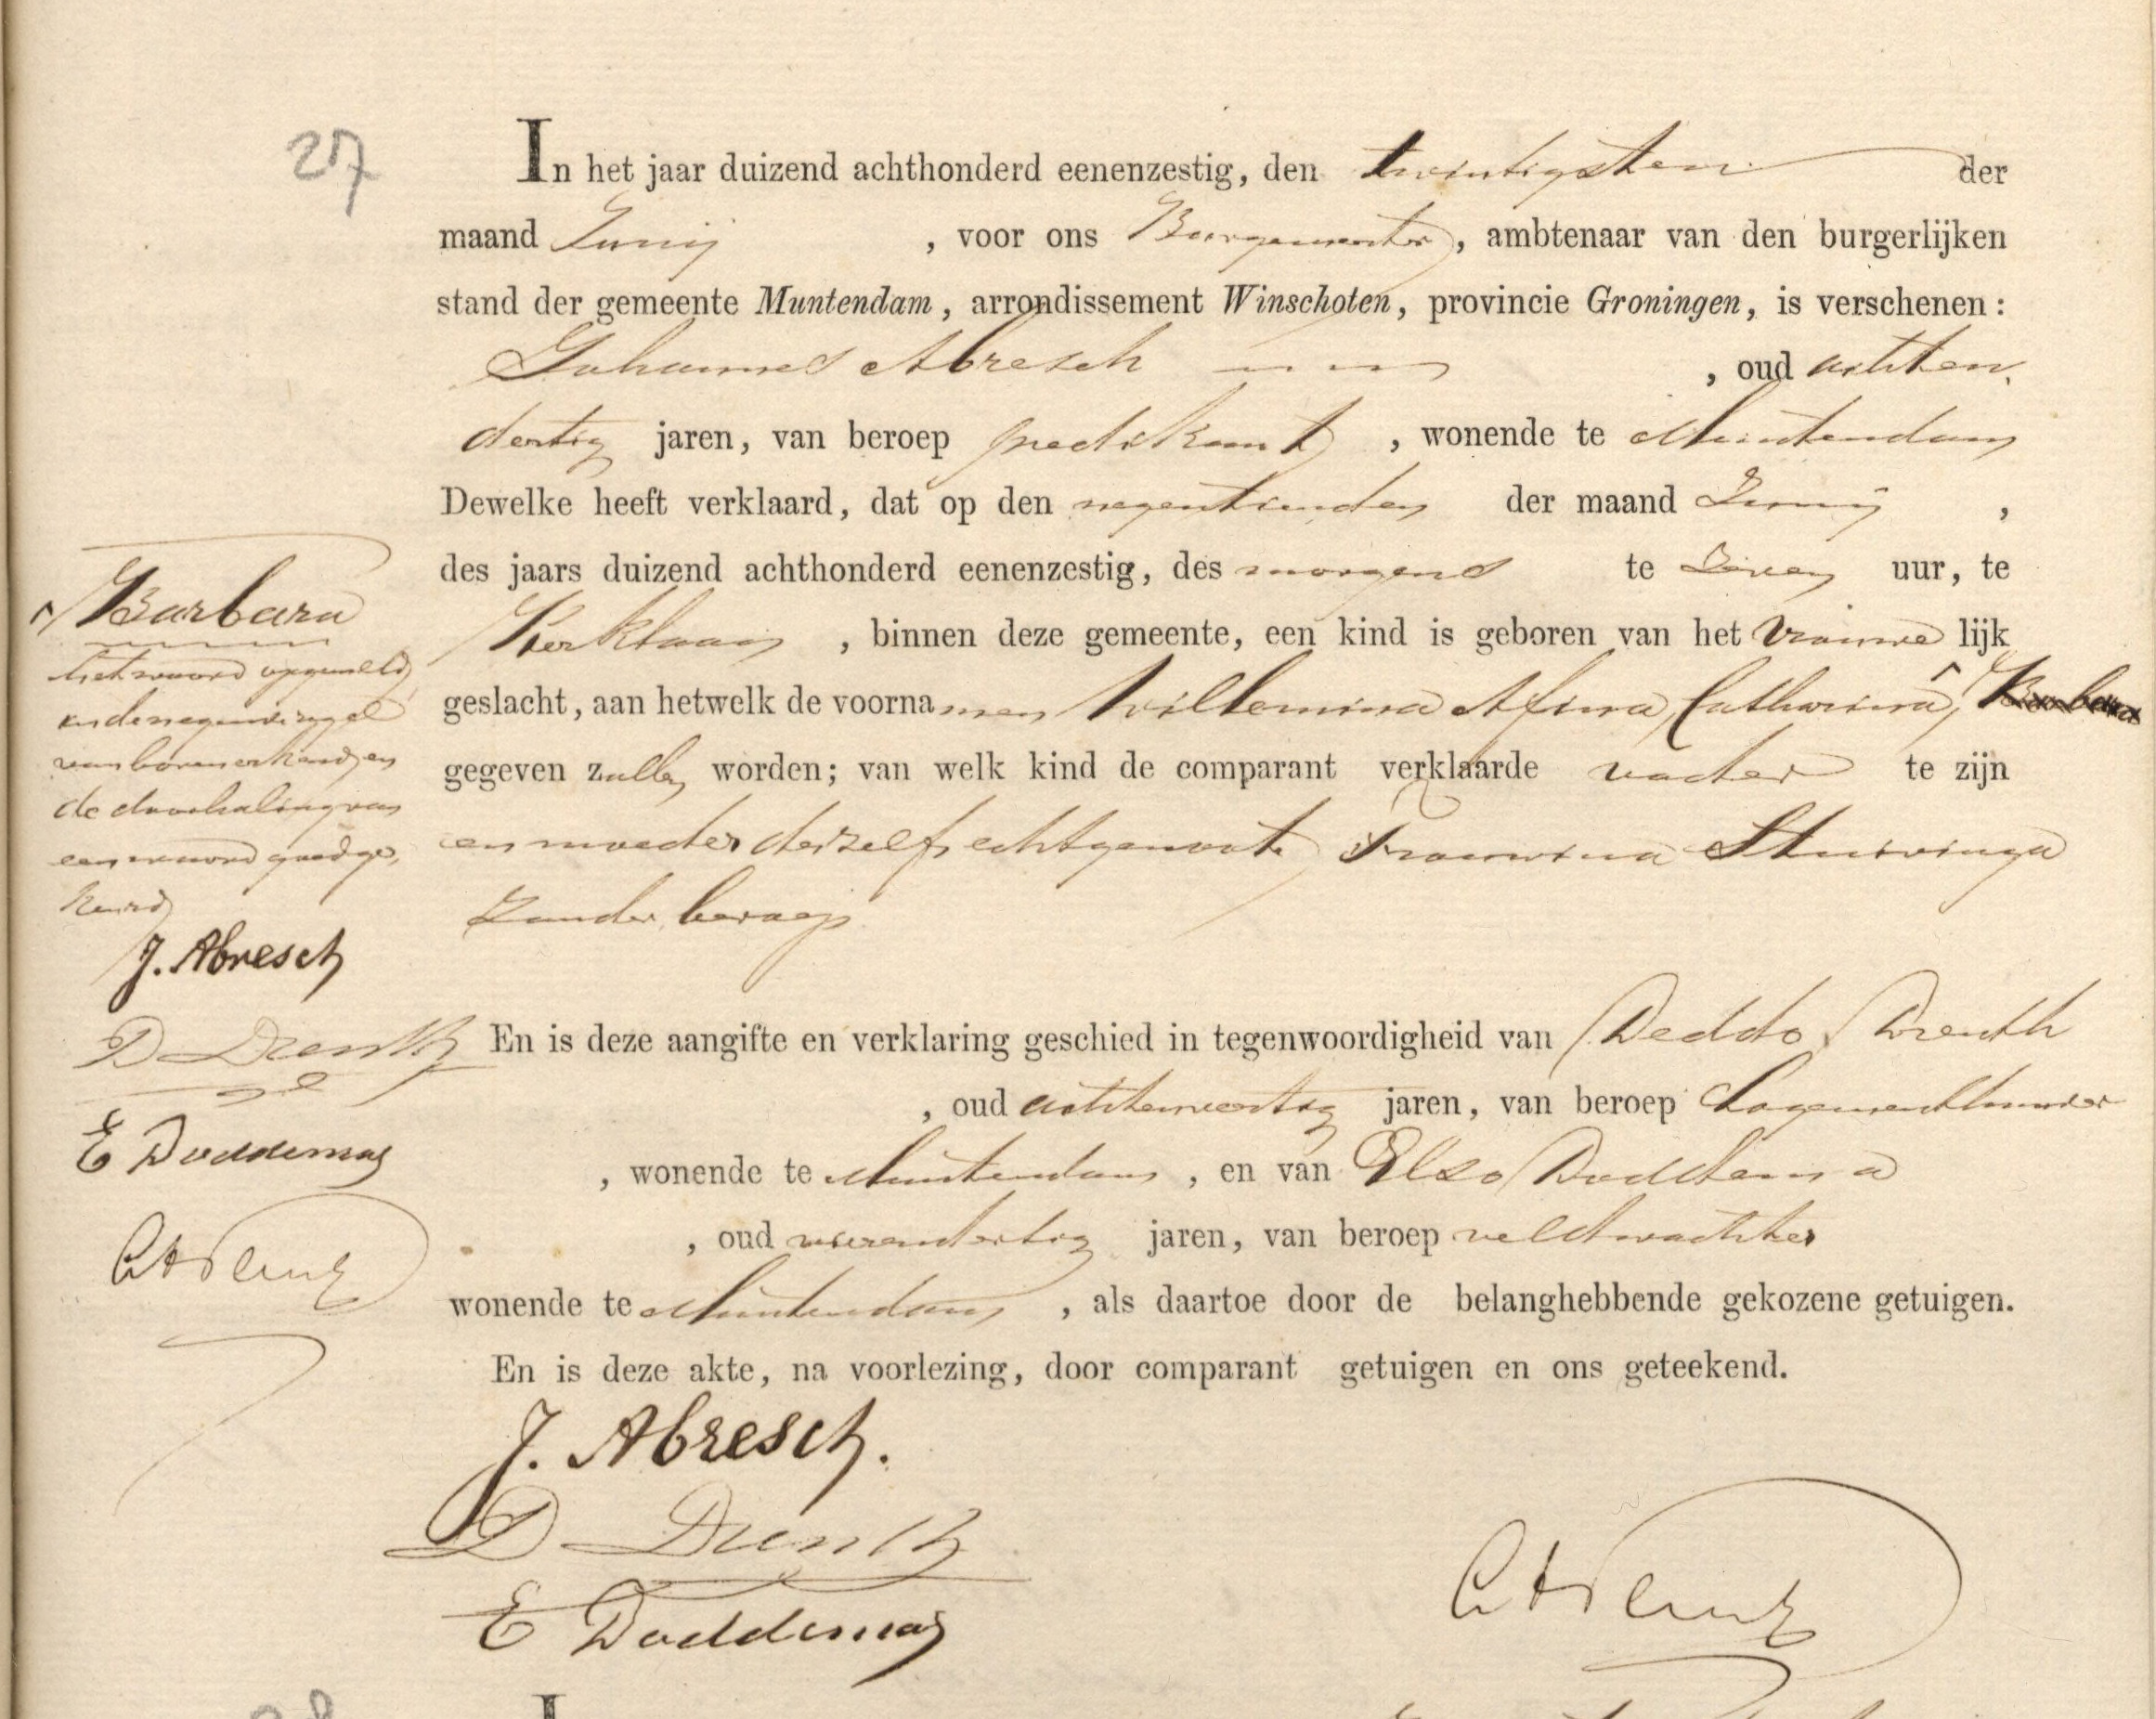 27
In het jaar duizend achthonderd eenenzestig, den twintigsten der
maand Junij , voor ons Burgemeester, ambtenaar van den burgerlijken
stand der gemeente Muntendam, arrondissement Winschoten, provincie Groningen, is verschenen:
Johannes Abresch , oud achten
dertig jaren, van beroep predikant , wonende te Muntendam
Dewelke heeft verklaard, dat op den negentienden der maand Junij ,
des jaars duizend achthonderd eenenzestig, des morgens te zeven uur, te
Kerklaan , binnen deze gemeente, een kind is geboren van het vrouwelijk
geslacht, aan hetwelk de voornamen Willemina Afina Catharina, Barbara
gegeven zullen worden; van welk kind de comparant verklaarde vader te zijn
en moeder deszelfs echtgenoote Trouwina Stuivinga
zonder beroep
En is deze aangifte en verklaring geschied in tegenwoordigheid van Deddo Drenth
, oud achtenveertig jaren, van beroep Logementhouder
, wonende te Muntendam , en van Elzo Doddema
, oud vierendertig jaren, van beroep veldwachter
wonende te Muntendam , als daartoe door de belanghebbende gekozene getuigen.
En is deze akte, na voorlezing, door comparant getuigen en ons geteekend.
J. Abresch.
D Drenth
E Doddema
Barbara
het woord opgemeld
en de negende regel
van boven erkend en
de doorhaling van
een woord goedge,
keurd
J. Abresch
D Drenth
E Doddema